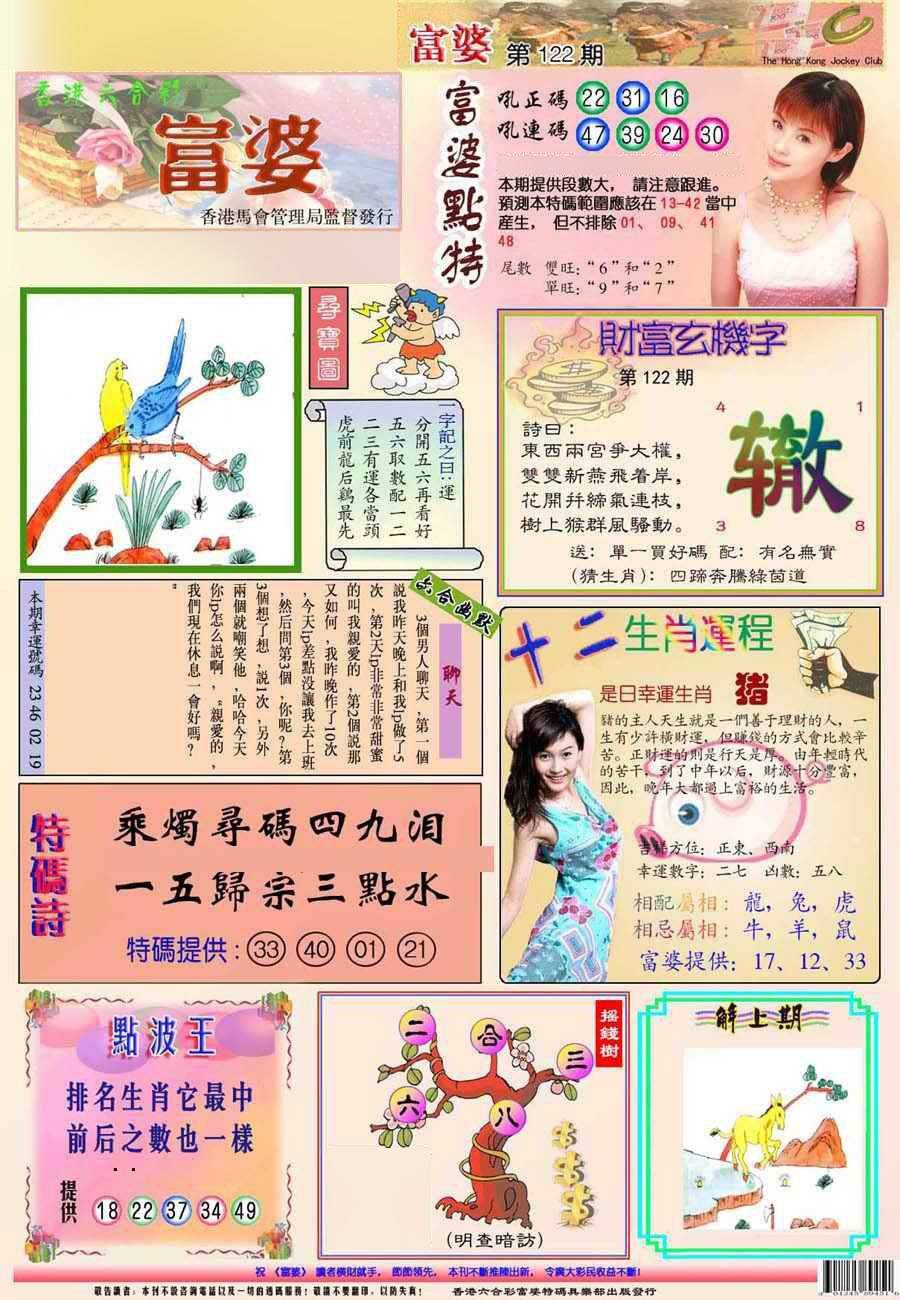 富婆 第122期
The Hong Kong Jockey Club
香港六合彩
富婆
香港馬會管理局監督發行
富婆點特
吼正碼 22 31 16
吼連碼 47 39 24 30
本期提供段數大， 請注意跟進。
預測本特碼範圍應該在 13-42 當中
産生， 但不排除 01、 09、 41
48
尾數 雙旺：“6”和“2”
單旺：“9”和“7”
尋寶圖
一字記之曰：運
分開五六再看好
五六取數配一二
二三有運各當頭
虎前龍后鷄最先
財富玄機字
第122期
4 1
轍
3 8
詩曰：
東西兩宮爭大權，
雙雙新燕飛着岸，
花開幷締氣連枝，
樹上猴群風騷動。
送： 單一買好碼 配： 有名無實
（猜生肖）： 四蹄奔騰綠茵道
六合幽默
聊天
3個男人聊天，第一個
説我昨天晚上和我lp做了5
次，第2天lp非常非常甜蜜
的叫我親愛的，第2個説那
又如何，我昨晚作了10次
，今天lp差點没讓我去上班
，然后問第3個，你呢？第
3個想了想，説1次，另外
兩個就嘲笑他，哈哈今天
你lp怎么説啊，“親愛的，
我們現在休息一會好嗎？
”
本期幸運號碼 23 46 02 19
十二生肖運程
是日幸運生肖 猪
豬的主人天生就是一們善于理財的人，一
生有少許橫財運，但賺錢的方式會比較辛
苦。正財運的則是行天是厚。由年輕時代
的苦干，到了中年以后，財源十分豐富，
因此，晚年大都過上富裕的生活。
吉祥方位：正東、西南
幸運數字：二七 凶數：五八
相配屬相：龍，兔，虎
相忌屬相：牛，羊，鼠
富婆提供：17、12、33
特碼詩
乘燭尋碼四九泪
一五歸宗三點水
特碼提供：33 40 01 21
點波王
排名生肖它最中
前后之數也一樣
提供 18 22 37 34 49
搖錢樹
二 合 三
六 八
（明查暗訪）
解上期
祝 《富婆》 讀者橫財就手， 節節領先， 本刊不斷推陳出新， 令廣大彩民收益不斷！
敬告讀者：本刊不設咨詢電話以及一切的透碼服務！敬讀不要翻印，以防失真！ 香港六合彩富婆特碼俱樂部出版發行